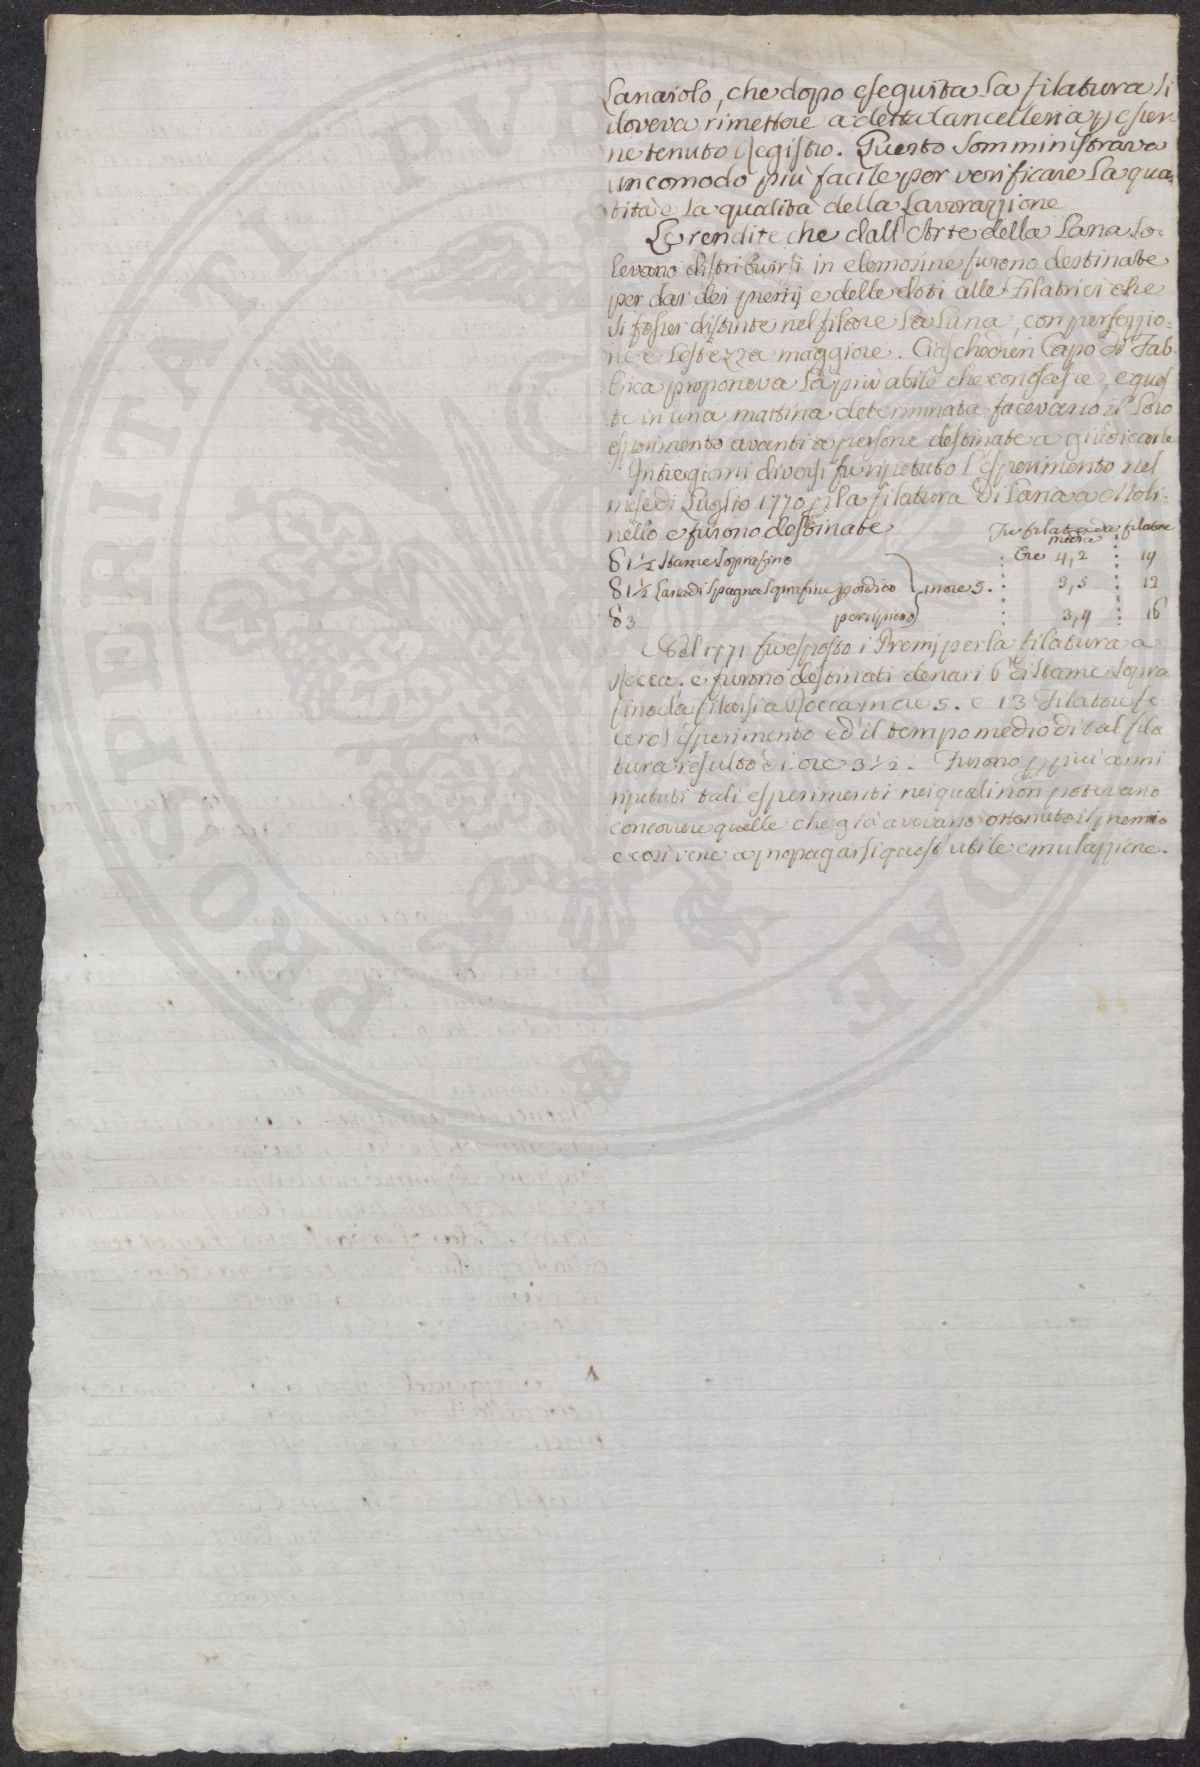 Lanaiolo, che dopo eseguita la filatura si
doveva rimettere a detta Cancelleria p esser-
ne tenuto Registro. Questo somministrava
un comodo più facile per verificare la quan
tità e la qualità della Lavorazzione
Le rendite che dall'Arte della Lana so-
levano distribuirsi in elemosine furono destinate
per dar dei premij e delle doti alle Filatrici che
si fosser distinte nel filare la Lana, con perfezzio-
ne e lestezza maggiore. Ciaschedun Capo di Fab
brica proponeva la più abile che conoscesse, e ques
te in una mattina determinata facevano il loro
esperimento avanti a persone destinate a giudicarle
In tre giorni diversi fu ripututo l'esperimento nel
mese di Luglio 1770 p la filatura di Lana a Moli-
nello e furono destinate
Fu filata da filatore
media
δ 1½ stame soprafino Ore 4,2 14
δ 1½ Lana di Spagna soprafine p ordito in ore 5. 3,5 12
δ 3 per ripieno 3,4 16
Nel 1771 fu esposto i Premj per la filatura a
Rocca. e furono destinati denari 6 di stame sopra
fino da filarsi a Rocca in ore 5. e 13 Filatore fe
cero l'esperimento ed il tempo medio di tal fila
tura resultò di ore 3½. Furono p più anni
ripututi tali esperimenti nei quali non potevano
concorrere quelle che già avevano ottenuto il premio
e così vene a propagarsi quest'utile emulazzione.
PROSPERITATI PVBLICAE